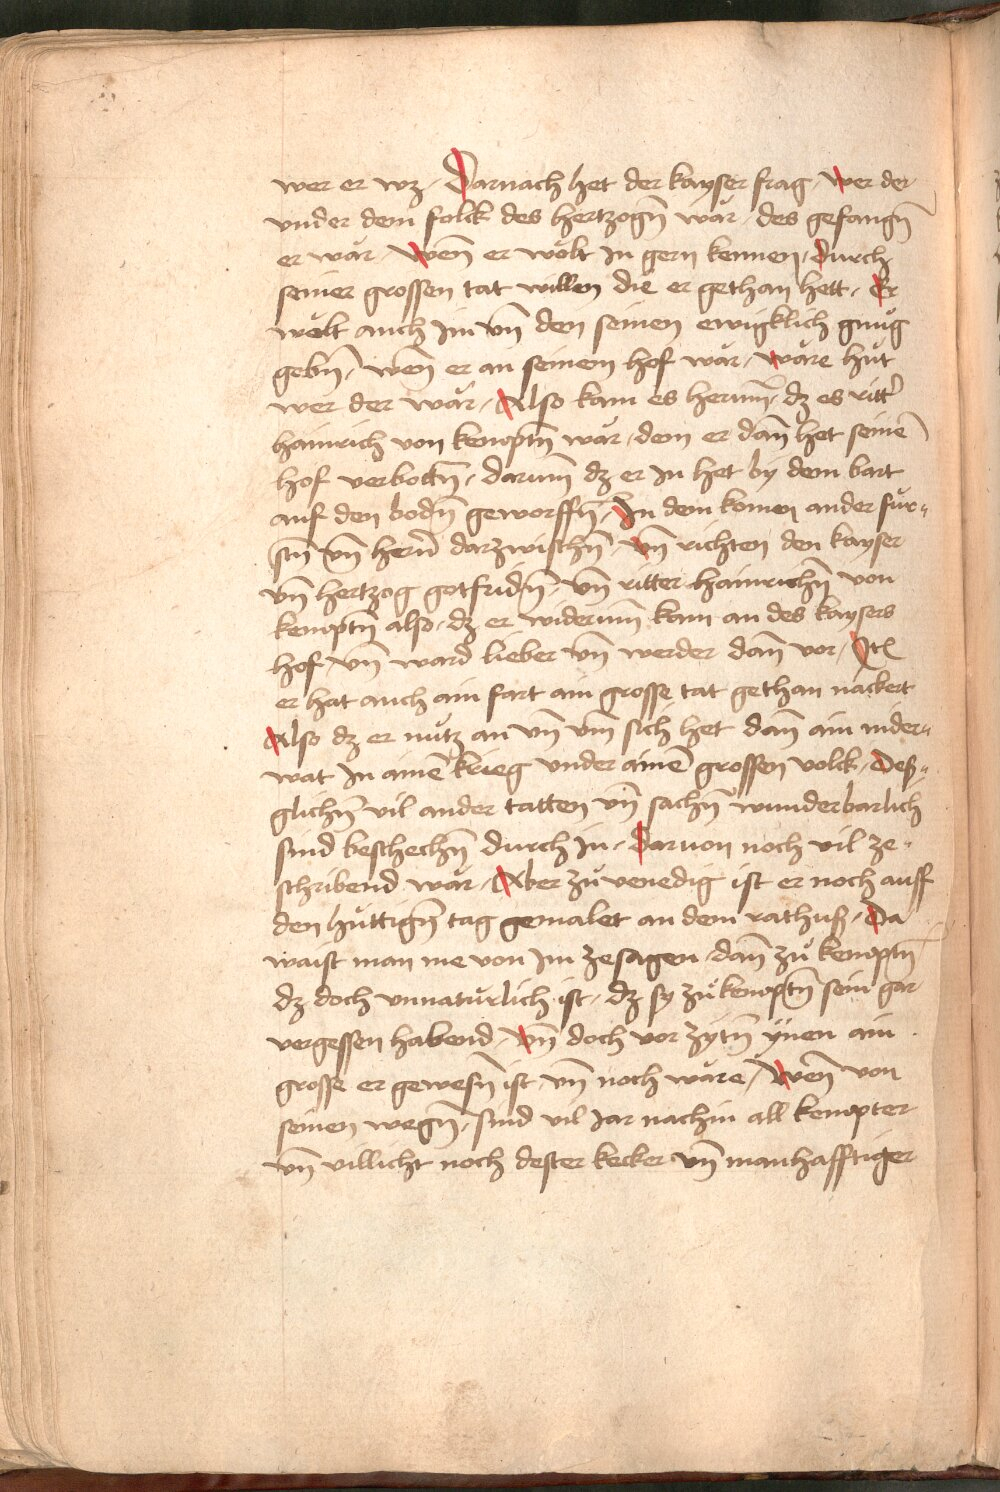 wer er wz. Darnach het der kayser frag, wer der
vnder dem folck des hertzogn̄ wär, des gefangn̄
er wär, Wen̄ er wölt in gern kennen, durch
seiner grossen tat willen die er gethan hett, Er
wölt auch im vn̄ den seinen ewigklich gnůg
gebn̄, wen̄ er an seinem hof wär, wäre hüt
wer der wär, Also kam es herum̄, dz es ritt̄
hainrich von kempten̄ wär, dem er dan̄ het seinē
hof verbottn̄, darum̄ dz er in het by dem bart
auf den bodn̄ geworffn̄, In dem komen ander für-
stn̄ vn̄ hern̄ darzwischn̄, Vn̄ richten den kayser
vn̄ hertzog gotfridn̄, vn̄ ritter hainrichn̄ von
kemptn̄ also, dz er widerum̄ kam an des kaysers
hof vn̄ ward lieber vn̄ werder dan̄ vor, Itē
er hat auch ain fart ain grosse tat gethan nackert
Also dz er nütz an vn̄ vm̄ sich het dan̄ ain nider-
wat in ainē krieg vnder ainē grossen volck, Deß-
glichn̄ vil ander tatten vn̄ sachn̄ wunderbarlich
sind beschechn̄ durch in, Daruon noch vil ze-
schribend wär, Aber zů venedig ist er noch auff
den hüttign̄ tag gemalet an dem rathuß, Da
waist man me von im ze sagen dan̄ zů kemptn̄
dz doch vnnatürlich ist, dz sy zů kemptn̄ sein gar
vergessen habend, Vn̄ doch vor zytn̄ ynen ain
grosse er gewesn̄ ist, vn̄ noch wäre, Wen̄ von
seinen wegn̄, sind vil iar nachin all kempter
vn̄ villicht noch dester kecker vn̄ manhafftiger